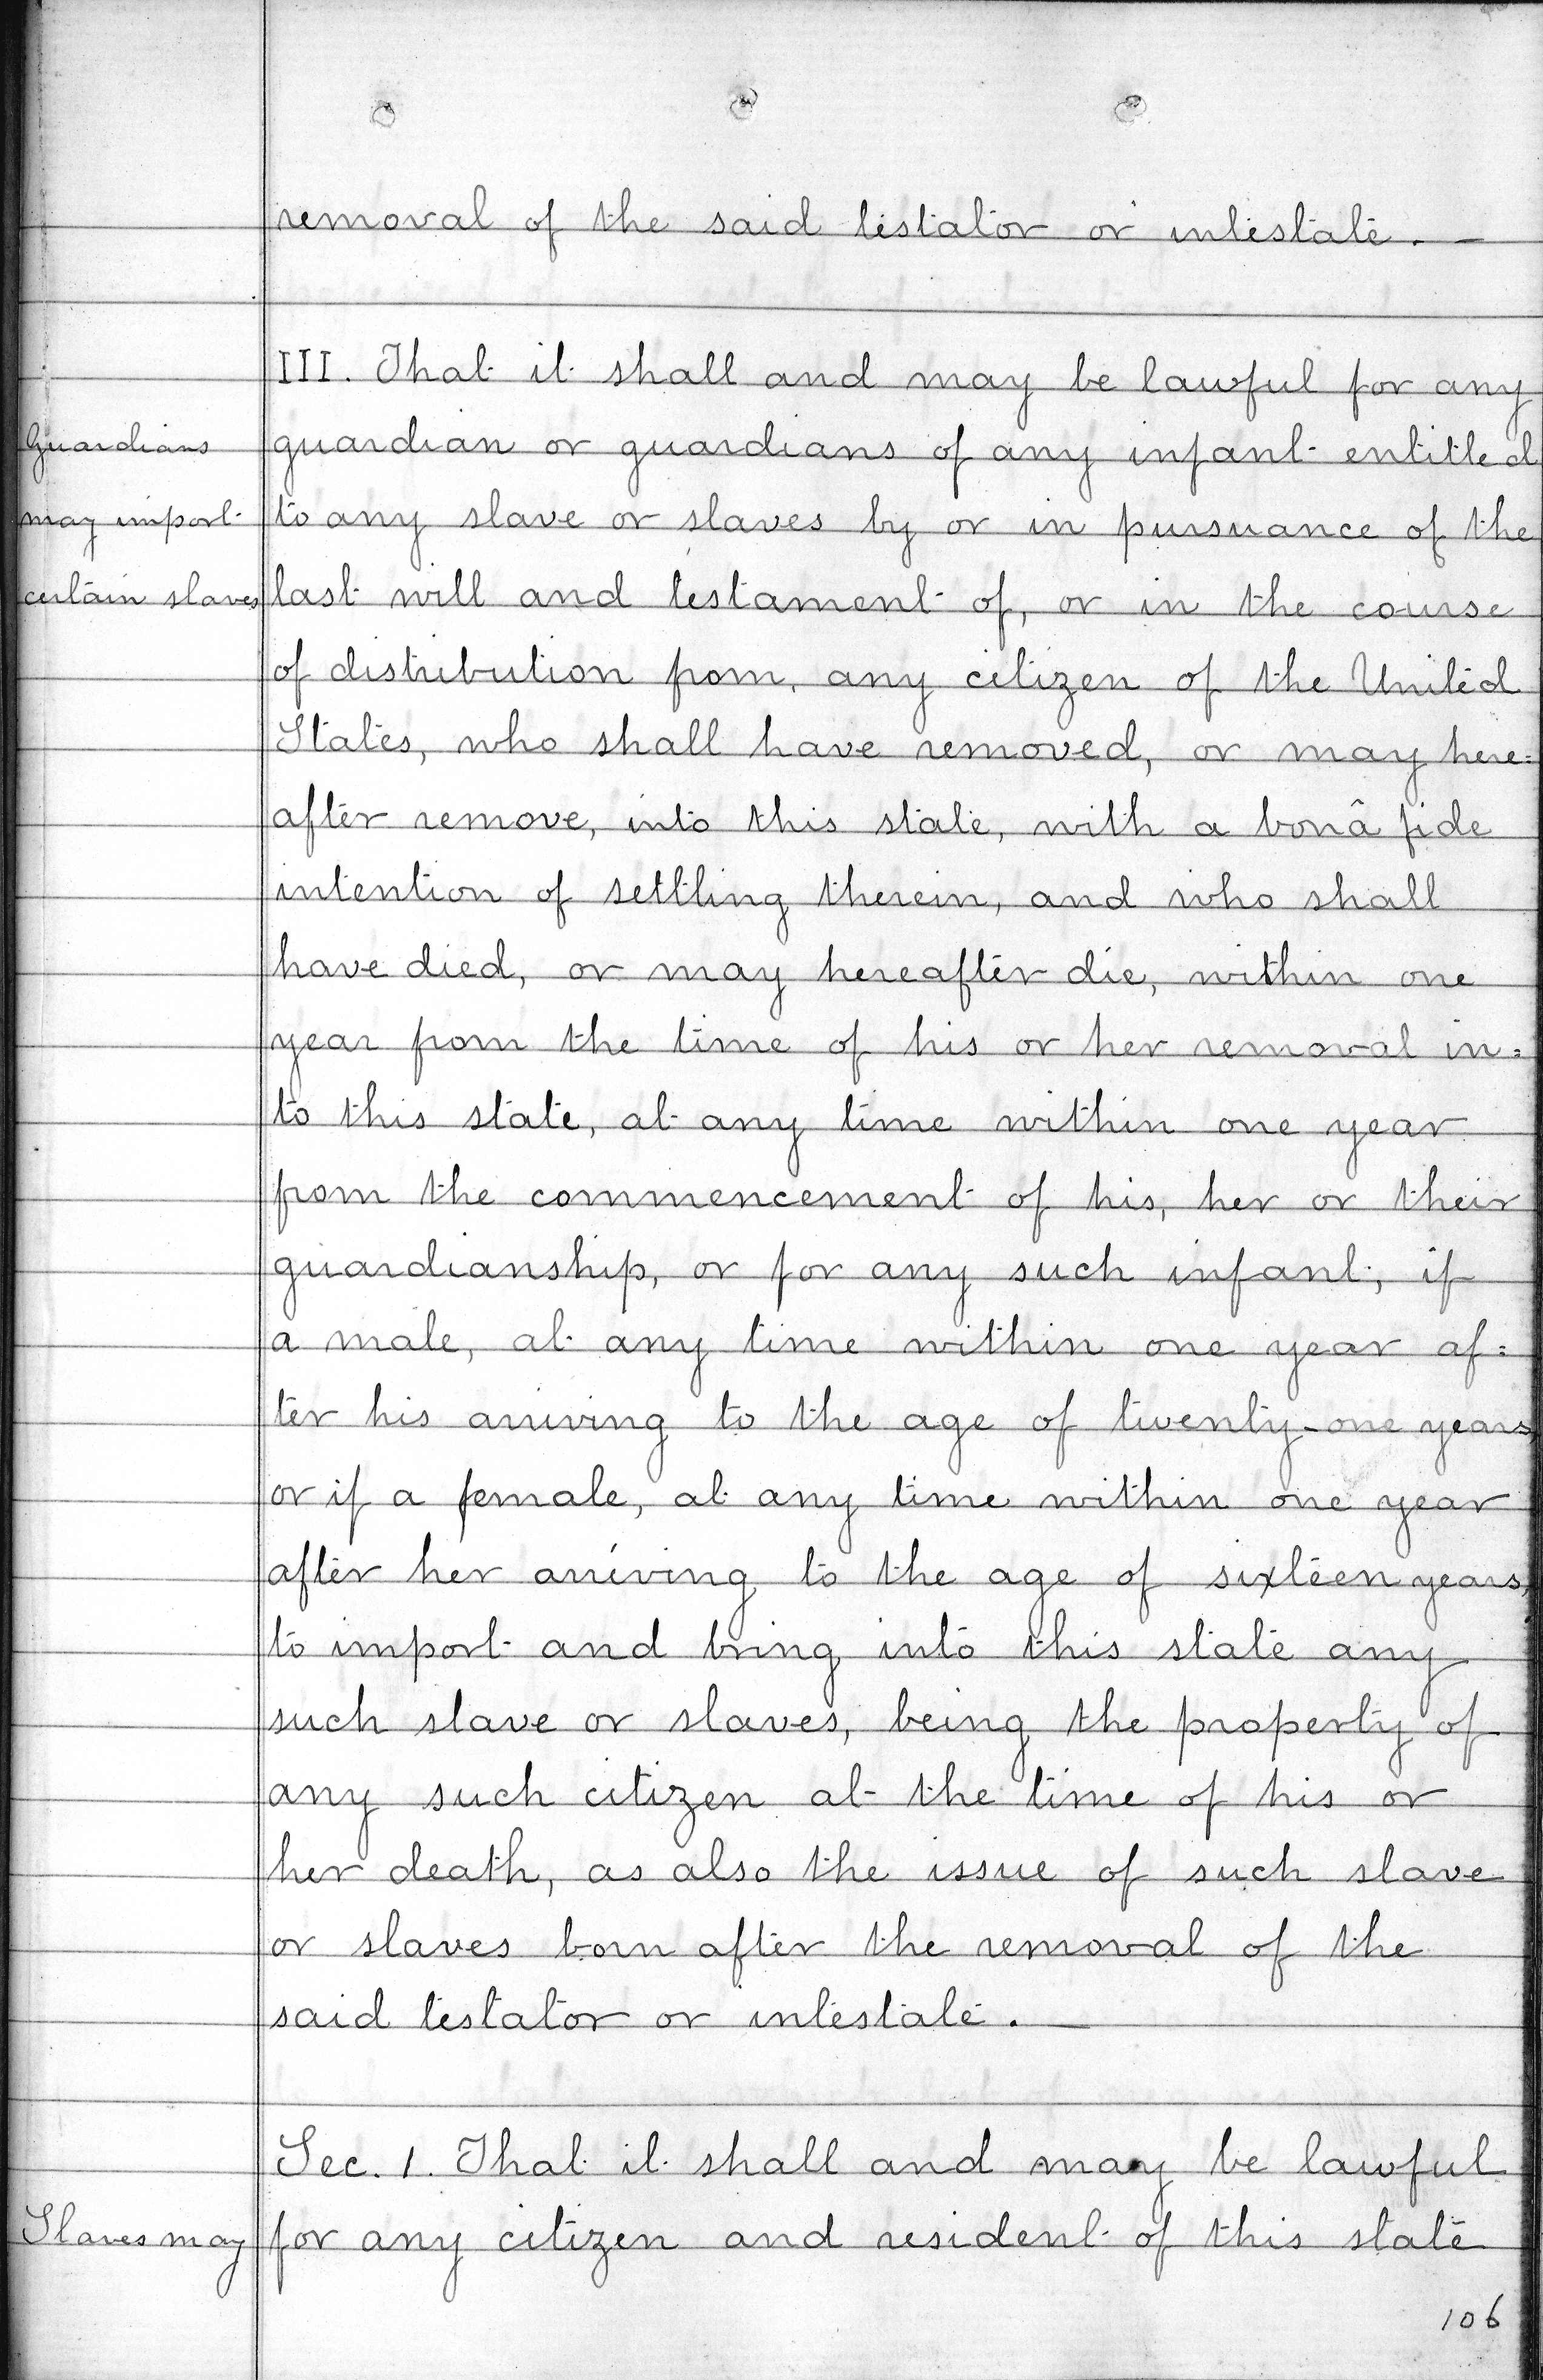 removal of the said testator or intestate. —
III. That it shall and may be lawful for any
Guardians guardian or guardians of any infant entitled
may import to any slave or slaves by or in pursuance of the
certain slaves last will and testament of, or in the course
of distribution from, any citizen of the United
States, who shall have removed, or may here=
after remove, into this state, with a bonâ fide
intention of settling therein, and who shall
have died, or may hereafter die, within one
year from the time of his or her removal in=
to this state, at any time within one year
from the commencement of his, her or their
guardianship, or for any such infant, if
a male, at any time within one year af=
ter his arriving to the age of twenty-one years,
or if a female, at any time within one year
after her arriving to the age of sixteen years,
to import and bring into this state any
such slave or slaves, being the property of
any such citizen at the time of his or
her death, as also the issue of such slave
or slaves born after the removal of the
said testator or intestate. —
Sec. 1. That it shall and may be lawful
Slaves may for any citizen and resident of this state
106